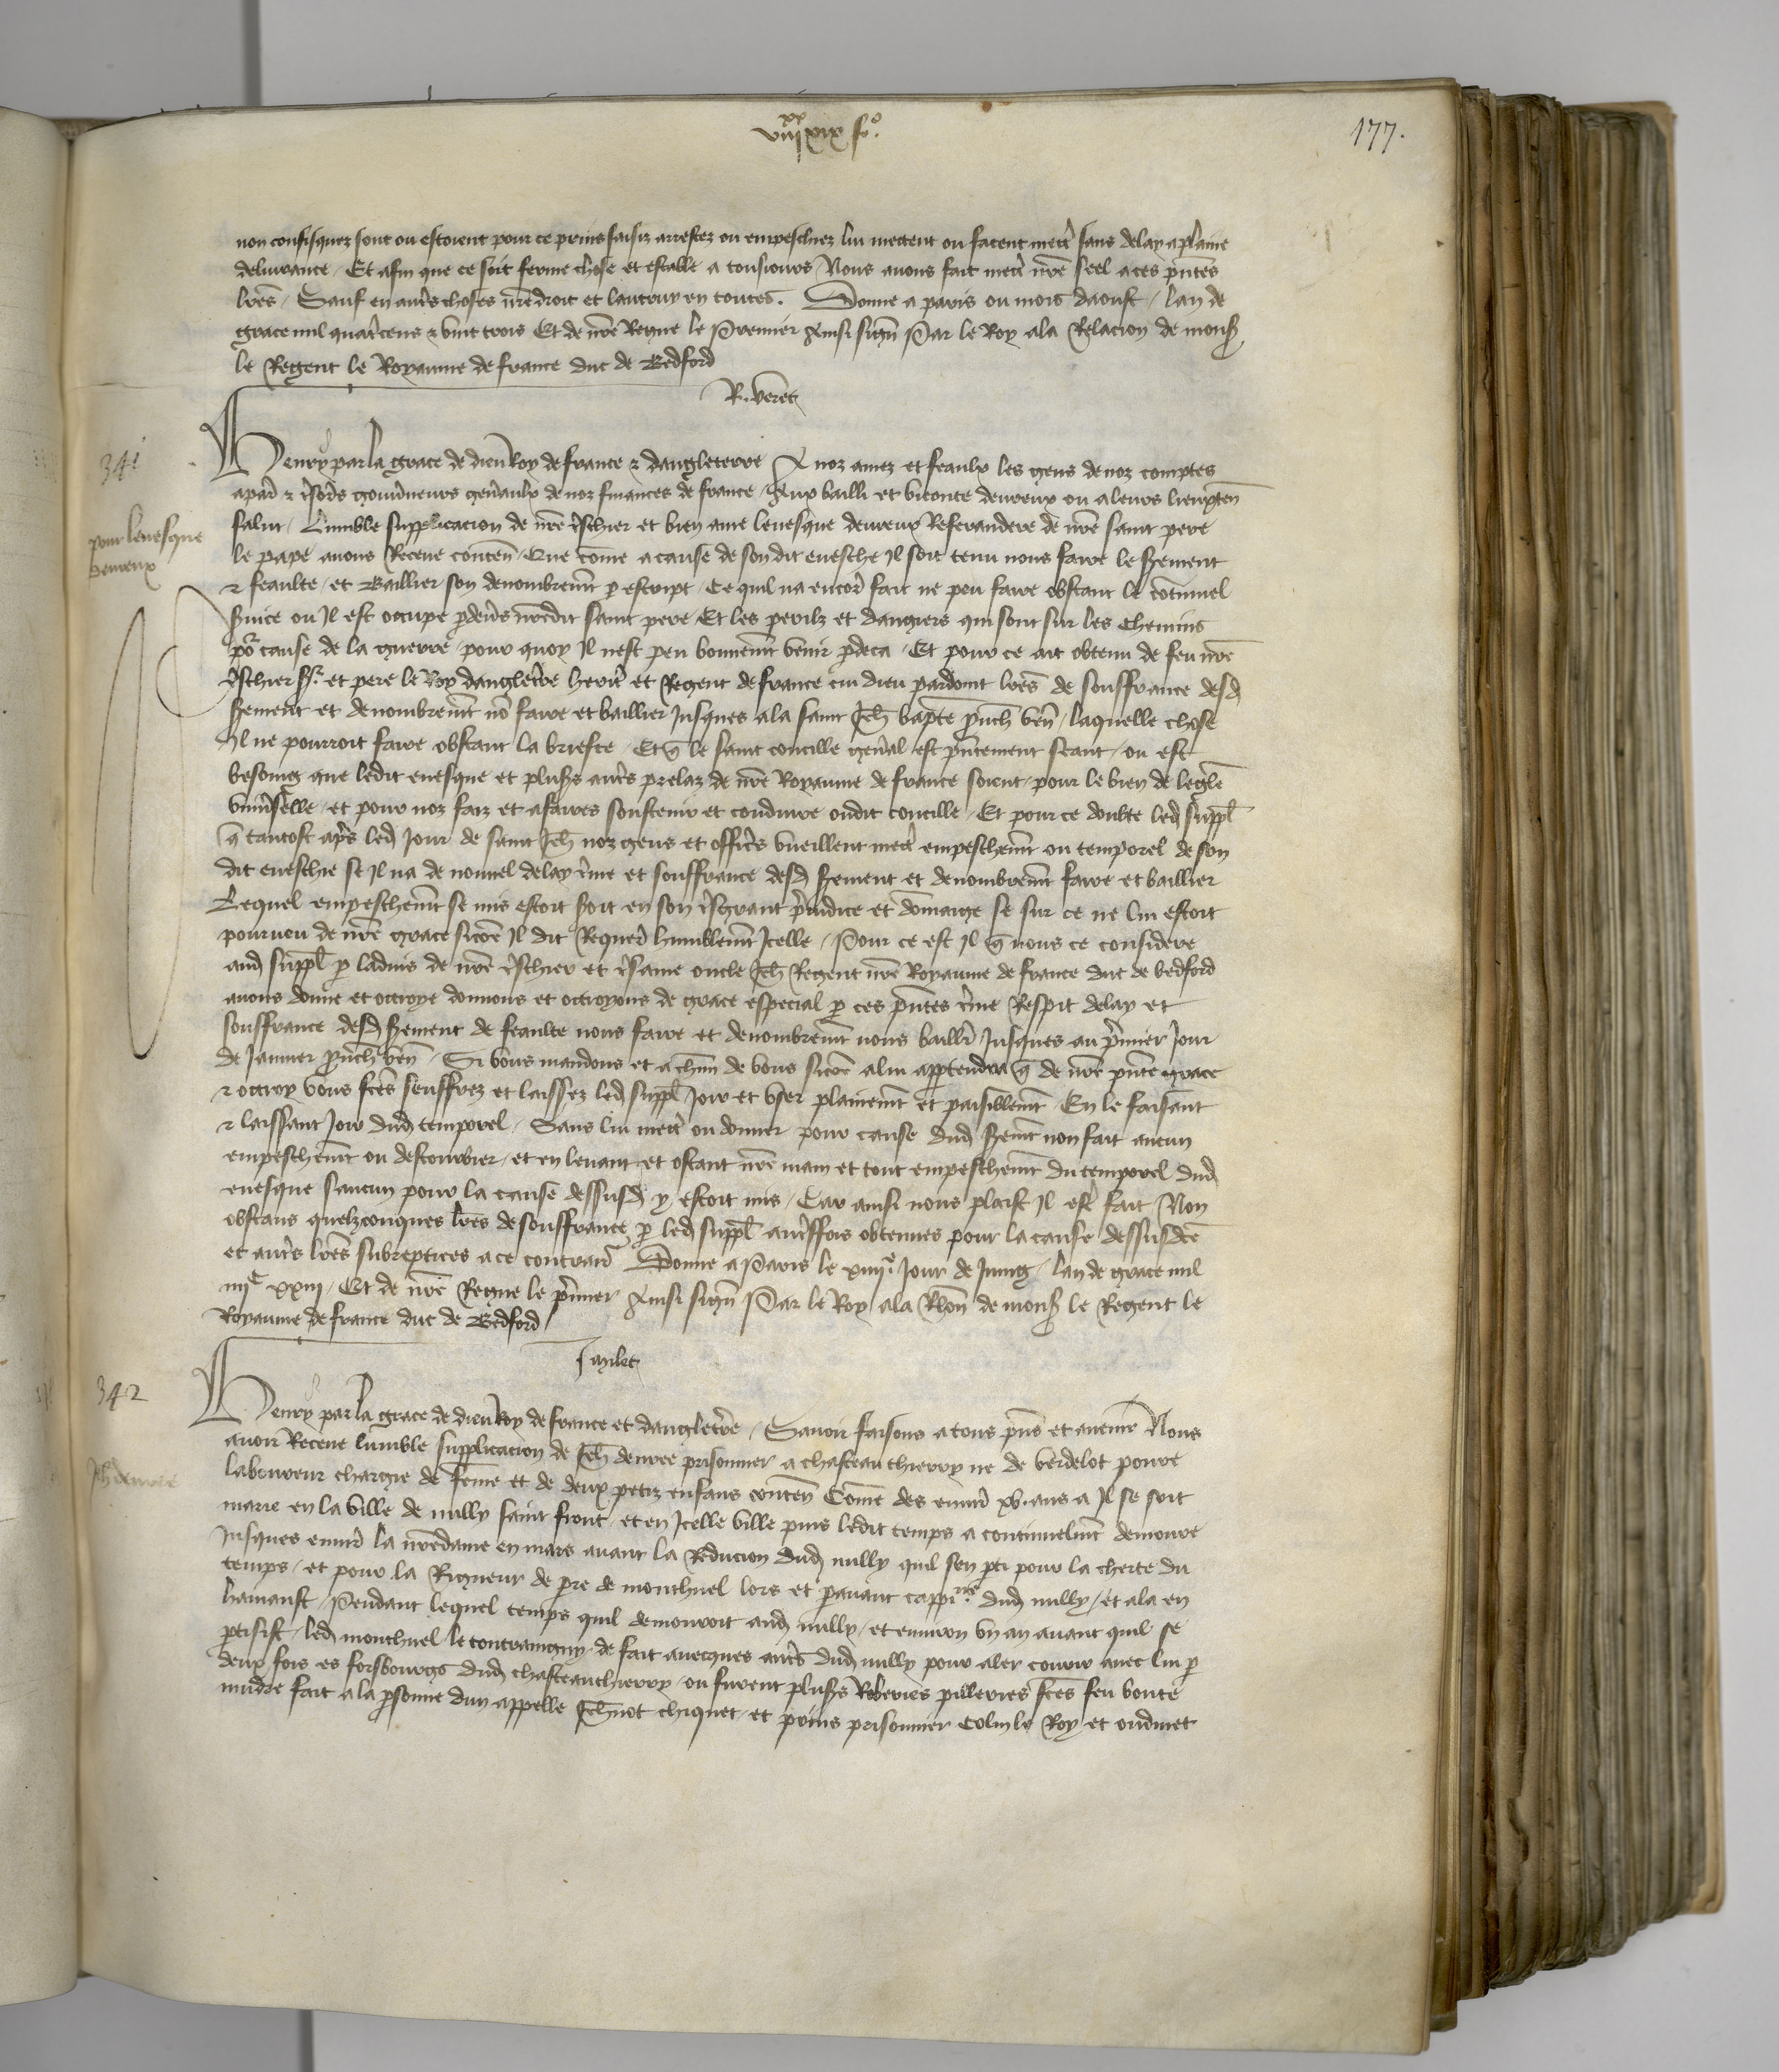 viiixx xix fo.
177.
non confisquez sont ou estoient pour ce prins saisiz arrestez ou empeschiez lui mettent ou facent mettr̄ sans delay a plaine
deliurance / Et afin que ce soit ferme chose et estable a tousiours / Nous auons fait mettr̄ nr̄e seel a ces pn̄tes
lrēs / Sauf en autr̄s choses nr̄e droit et lautruy en toutes. Donne a paris ou mois daoust / lan de
grace mil quatr̄cens & vint trois Et de nr̄e Regne le Premier Ainsi sign̄ Par le Roy a la Relacion de mons
le Regent le Royaume de france duc de Bedford
R. veret
341
Henry par la grace de dieu Roy de france & dangleterre A noz amez et feaulx les gens de noz comptes
a par̄ & tr̄sor̄s gouu̓neurs gen̄aulx de noz finances de france / Aux bailli et viconte deureux ou a leurs lieuxten̄
pour leuesque
deureux
salut / Lumble supplicacion de nr̄e tr̄schier et bien ame leuesque deureux Referandere de nr̄e saint pere
le pape auons Receue conten̄ / Que cōme a cause de son dit euesche Il soit tenu nous faire le sr̄ement
& feaulte / et Baillier son denombremt̄ p escript / Ce quil na encor̄ fait ne peu faire obstant le cōtinuel
s̄uice ou Il est occupe p deu̓s nr̄edit saint pere Et les perilz et dangiers qui sont sur les chemins
po᷑ cause de la guerre / pour quoy Il nest peu bonnemt̄ venir p deca / Et pour ce ait obtenu de feu nr̄e
tr̄schier s᷑ et pere le Roy dangletr̄e herit̄ et Regent de france cui dieu pardoint lrēs de souffrance desd
sr̄ement et denombremt̄ nō faire et baillier Jusques a la saint Jeh̄ bapte p̄uch ven̄ / laquelle chose
Il ne pourroit faire obstant la briefte / Et q̄ le saint concille gen̄al est pn̄tement seant / ou est
besoing que ledit euesque et plus̓s autr̄s prelaz de nr̄e Royaume de france soient / pour le bien de leglē
vniu̓selle / et pour noz faiz et afaires soustenir et conduire oudit concille / Et pour ce doubte led suppl̄
q̄ tantost apr̄s led Jour de saint Jeh̄ noz gens et offic̓s vueillent mettr̄ empeschemt̄ ou temporel de son
dit eueschie se Il na de nouuel delay t̓me et souffrance desd sr̄ement et denombremt̄ faire et baillier
Lequel empeschemt̄ se mis estoit s̓oit en son tr̄sgrant pr̄iudice et dōmaige se sur ce ne lui estoit
pourueu de nr̄e grace sicōe Il dit Requer̄ humblemt̄ Icelle / Pour ce est Il q̄ nous ce considere
aud suppl̄ p laduis de nr̄e tr̄schier et tr̄same oncle Jeh̄ Regent nr̄e Royaume de france duc de bedford
auons donne et octroye donnons et octroyons de grace especial p ces pn̄tes t̓me Respit delay et
souffrance desd sr̄ement de feaulte nous faire et denombremt̄ nous baill̓ Jusques au pr̄mier Jour
de Januier p̄uch ven̄ / Si vous mandons et a chūn de vous sicōe a lui appartendra q̄ de nr̄e pn̄te grace
& octroy vous fct̄es seuffrez et laissez led suppl̄ Joir et vser plainemt̄ et paisiblemt̄ / En le faisant
& laissant Joir dud temporel / Sans lui mettr̄ ou donner pour cause dud sr̄emt̄ non fait aucun
empeschemt̄ ou destourbier / et en leuant et ostant nr̄e main et tout empeschemt̄ du temporel dud
euesque saucun pour la cause dessusd y estoit mis / Car ainsi nous plaist Il estr̄ fait / Non
obstans quelzconques lrēs de souffrance p led suppl̄ autr̄ffois obtenues pour la cause dessusdcē
et autr̄s lrēs subreptices a ce contrair̄ Donne a Paris le xiiii.e Jour de Juing / lan de grace mil
iiiic xxiii / Et de nr̄e Regne le pr̄mier Ainsi sign̄ Par le Roy a la Rlōn de mons le Regent le
Royaume de france duc de Bedford
J anlet
342
Henry par la grace de dieu Roy de france et dangletr̄e / Sauoir faisons a tous pn̄s et auenir Nous
auoir Receue lumble supplicacion de Jeh̄ denree prisonnier a chasteauthierry ne de verdelot poure
Jeh̄ denree
laboureur chargie de fēme et de deux petiz enfans conten̄ Cōme des enuir̄ xv. ans a Il se soit
marie en la ville de nully saint front / et en Icelle ville puis ledit temps a continuelmt̄ demoure
Jusques enuir̄ la nr̄edame en mars auant la Reducion dud nully quil sen pti pour la cherte du
temps / et pour la Rigueur de prē de monthuel lors et pauant cappine dud nully / et ala en
haynaust / Pendant lequel temps quil demouroit aud nully / et enuiron vn an auant quil se
ptisist / led monthuel le contraingny de fait auecques autr̄s dud nully pour aler courir auec lui p
deux fois es forsbourgs dud chasteauthierry / ou furent plus̓s Roberies pilleries fct̄es feu boute
murdre fait a la psonne dun appelle Jeh̄not chiquet / et prins prisonnier Colin le Roy et oudinet